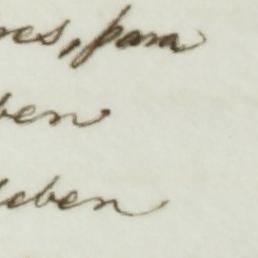 res, para
ben
deben